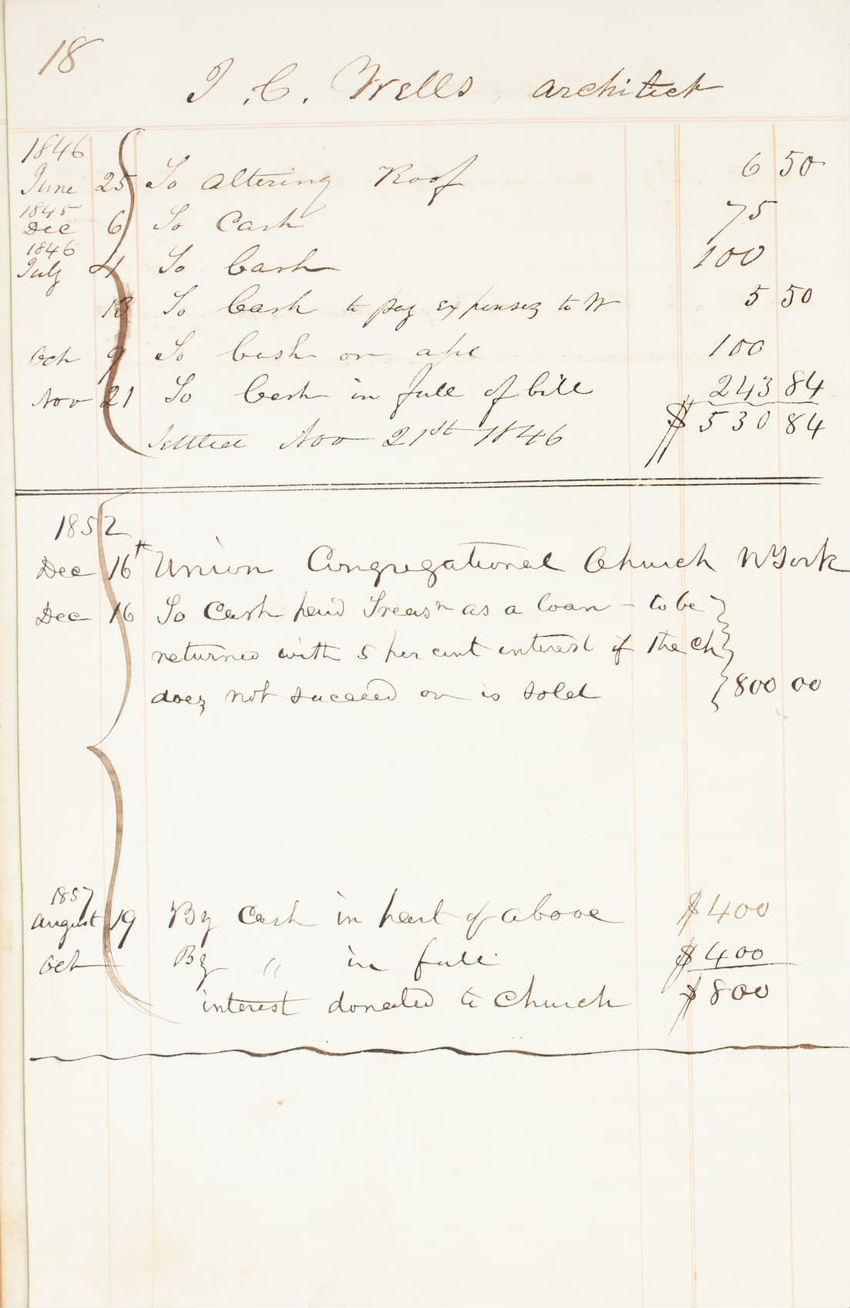 18
J. C. Wells, architect
1846
June 25 To altering Roof 6 50
1845
Dec 6 To Cash 75
1846
July 4 To Cash 100
13 To Cash to pay expenses to W 5 50
Oct 9 To Cash on apl 100
Nov 21 To Cash in full of bill 243 84
Settled Nov 21st 1846 $530 84
1852
Dec 16th Union Congregational Church N York
Dec 16 To Cash paid Treasr as a loan - to be
returned with 5 per cent interest if the Ch
does not succeed or is sold 800 00
1857
August 19 By Cash in part of above $400
Oct By " in full $400
interest donated to Church $800